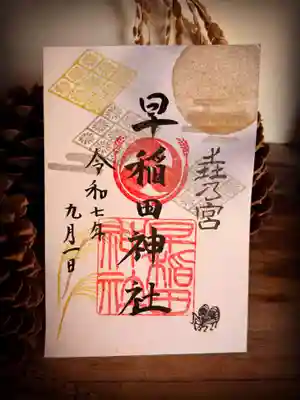 壵乃宮
早稲田神社
令和七年
九月一日
早稲田
神社